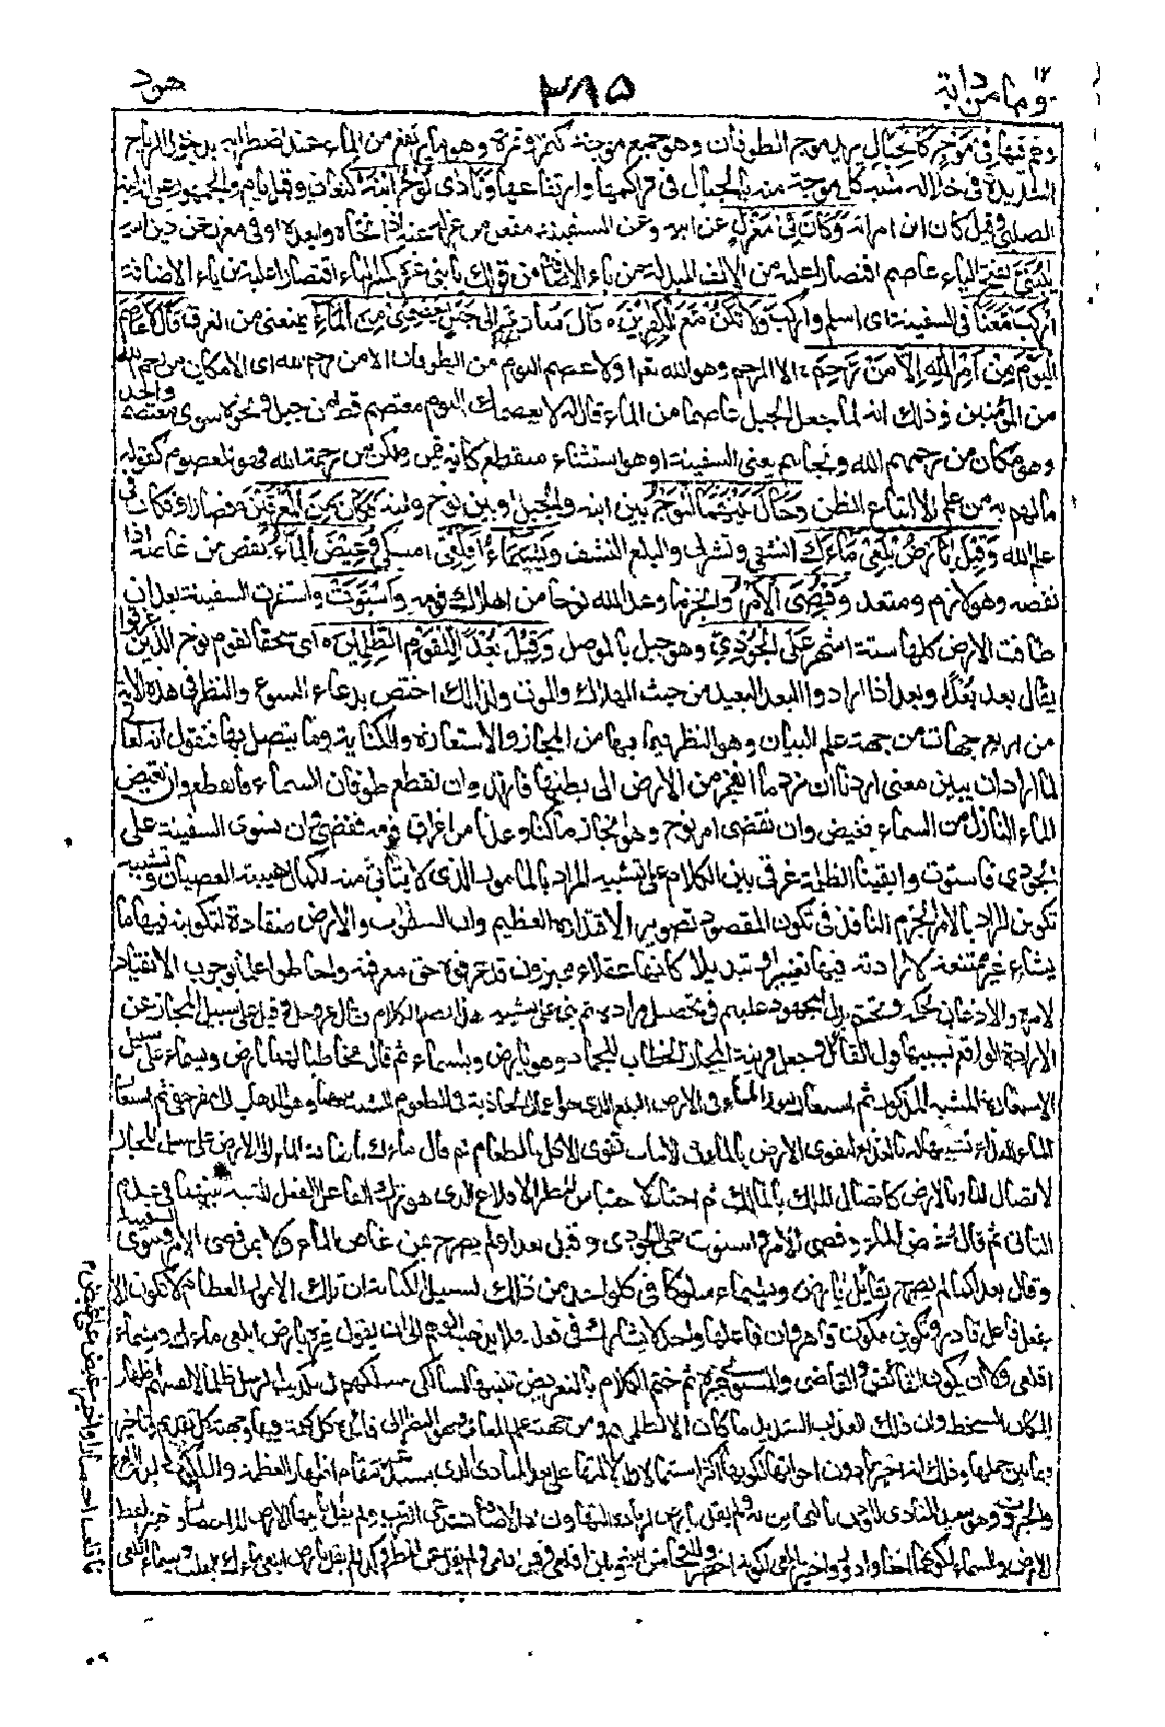 ١٢ وما من دابة
٣٨٥
هود
وهم فيها في موج كالجبال يريد موج الطوفان وهو جمع موجة كتمر وتمرة وهو ما يرتفع من الماء عند اضطرابه بدخول الرياح
الشديدة في خلاله شبه كل موجة منه بالجبال في تراكمها وارتفاعها ونادى نوح ابنه كنعان وقيل يام والجمهور على انه ابنه
الصلبي وقيل كان ابن امرأته وكان في معزل عن ابيه وعن السفينة مفعل من عزله عنه اذا نحاه وابعده او في معزل عن دين ابيه
يبني بفتح الياء عاصم اقتصارا عليه من الالف المبدلة من ياء الاضافة من قولك يا بنيا غيره بكسر الياء اقتصارا عليه من ياء الاضافة
اركب معنا في السفينة اى اسلم واركب ولا تكن مع الكفرين ه قال ساوى الى جبل يعصمنى من الماء يمنعنى من الغرق قال لا عاصم
اليوم من امر الله الا من رحم الا الراحم وهو الله تعالى او لا عاصم اليوم من الطوفان الا من رحم الله اى الا مكان من رحم الله
من المؤمنين وذلك انه لما جعل الجبل عاصما من الماء قال له لا يعصمك اليوم معتصم قط من جبل ونحوه سوى معتصم واحد
وهو مكان من رحمهم الله ونجاهم يعنى السفينة او هو استثناء منقطع كانه قيل ولكن من رحمه الله فهو المعصوم كقوله
ما لهم به من علم الا اتباع الظن وحال بينهما الموج بين ابنه والجبل او بين نوح وابنه فكان من المغرقين فصار او فكان في
علم الله وقيل يارض ابلعى ماءك انشفى وتشربى والبلع النشف ويسماء اقلعى امسكى وغيض الماء نقص من غاضه اذا
نقصه وهو لازم ومتعد وقضى الامر وانجز ما وعد الله نوحا من اهلاك قومه واستوت واستقرت السفينة بعد ان
طافت الارض كلها ستة اشهر على الجودى وهو جبل بالموصل وقيل بعدا للقوم الظلمين ه اى سحقا لقوم نوح الذين غرقوا
يقال بعد بعدا وبعدا اذا ارادوا البعد البعيد من حيث الهلاك والموت ولذلك اختص بدعاء السوء والنظر في هذه الاية
من اربع جهات من جهة علم البيان وهو النظر فيما فيها من المجاز والاستعارة والكناية وما يتصل بها فنقول انه تعالى
لما اراد ان يبين معنى اردنا ان نرد ما انفجر من الارض الى بطنها فارتد وان نقطع طوفان السماء فانقطع وان نغيض
الماء النازل من السماء فغيض وان نقضى امر نوح وهو انجاز ما كنا وعدناه من اغراق قومه فقضى وان نسوى السفينة على
الجودى فاستوت وابقينا الظلمة غرقى بنى الكلام على تشبيه المراد بالمامور الذى لا يتأتى منه لكمال هيبته العصيان وتشبيه
تكوين المراد بالامر الجزم النافذ في تكون المقصود تصويرا لاقتداره العظيم وان السموات والارض منقادة لتكوينه فيها ما
يشاء غير ممتنعة لارادته فيها تغييرا وتبديلا كانها عقلاء مميزون قد عرفوه حق معرفته واحاطوا علما بوجوب الانقياد
لامره والاذعان لحكمه وتحتم بذل المجهود عليهم في تحصيل مراده ثم بنى على تشبيهه هذا نظم الكلام فقال عز وجل وقيل على سبيل المجاز عن
الارادة الواقع بسببها قول القائل وجعل قرينة المجاز الخطاب للجماد وهو يارض ويسماء ثم قال مخاطبا لهما يارض ويسماء على سبيل
الاستعارة للشبه المذكور ثم استعار لغور الماء فى الارض البلع الذى هو اعمال الجاذبة فى المطعوم للشبه بينهما وهو الذهاب الى مقر خفى ثم استعار
الماء للغذاء تشبيها له بالغذاء لتقوى الارض بالماء فى الانبات تقوى الاكل بالطعام ثم قال ماءك باضافة الماء الى الارض على سبيل المجاز
لاتصال الماء بالارض كاتصال الملك بالمالك ثم اختار لاحتباس المطر الاقلاع الذى هو ترك الفاعل الفعل للشبه بينهما فى عدم
التأنى ثم قال وغيض الماء وقضى الامر واستوت على الجودى وقيل بعدا ولم يصرح بمن غاض الماء ولا بمن قضى الامر وسوى السفينة
وقال بعدا كما لم يصرح بقائل يارض ويسماء سلوكا فى كل واحد من ذلك لسبيل الكناية ان تلك الامور العظام لا تكون الا
بفعل فاعل قادر وتكوين مكون قاهر وان فاعلها واحد لا يشارك في فعله فلا يذهب الوهم الى ان يقول غيره يارض ابلعى ماءك ويسماء
اقلعى ولا ان يكون الغائض والقاضى والمسوى غيره ثم ختم الكلام بالتعريض تنبيها لسالكى مسلكهم فى تكذيب الرسل ظلما لانفسهم اظهارا
لمكان السخط وان ذلك العذاب الشديد ما كان الا لظلمهم ومن جهة علم المعانى وهو النظر فى فائدة كل كلمة فيها وجهة كل تقديم وتاخير
فيما بين جملها وذلك انه اختير يا دون اخواتها لكونها اكثر استعمالا ولدلالتها على بعد المنادى الذى يستدعيه مقام اظهار العظمة والملكوت وابداء العزة
والجبروت وهو تبعيد المنادى المؤذن بالتهاون به ولم يقل يارضى لزيادة التهاون اذ الاضافة تستدعى القرب ولم يقل يا ايتها الارض للاختصار واختير لفظ
الارض والسماء لكونهما اخف وادور واختير ابلعى على ابتلعى لكونه اخصر وللتجانس بينه وبين اقلعى وقيل اقلعى ولم يقل عن المطر وكذا لم يقل يارض ابلعى ماءك فبلعت ويسماء اقلعى
فاقلعت اختصارا واختير غيض على غيض م